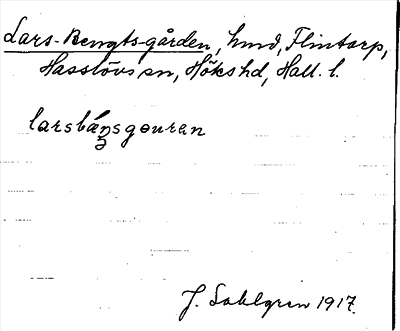 Lars-Bengts-gården, hmd, Flintarp,
Hasslövs sn, Höks hd, Hall. l.
larsbáŋsgouran
J. Sahlgren 1917.